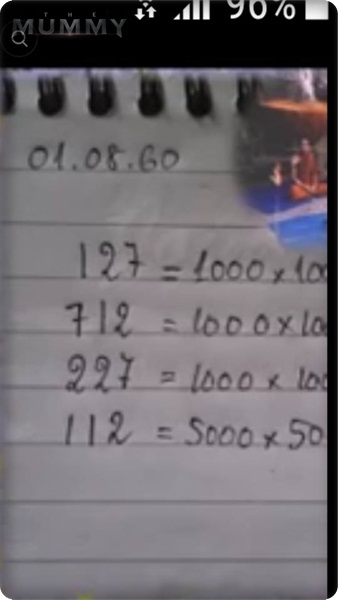 THE
MUMMY
96%
01.08.60
127 = 1000 x 100
712 = 1000 x 100
227 = 1000 x 100
112 = 5000 x 50